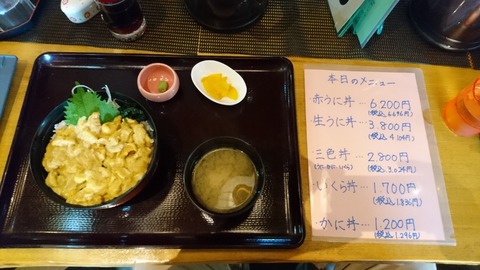 本日のメニュー
赤うに丼…6,200円
(税込6,696円)
生うに丼…3,800円
(税込4,104円)
三色丼…2,800円
(うに・かに・いくら) (税込3,024円)
いくら丼…1,700円
(税込1,836円)
かに丼…1,200円
(税込1,296円)